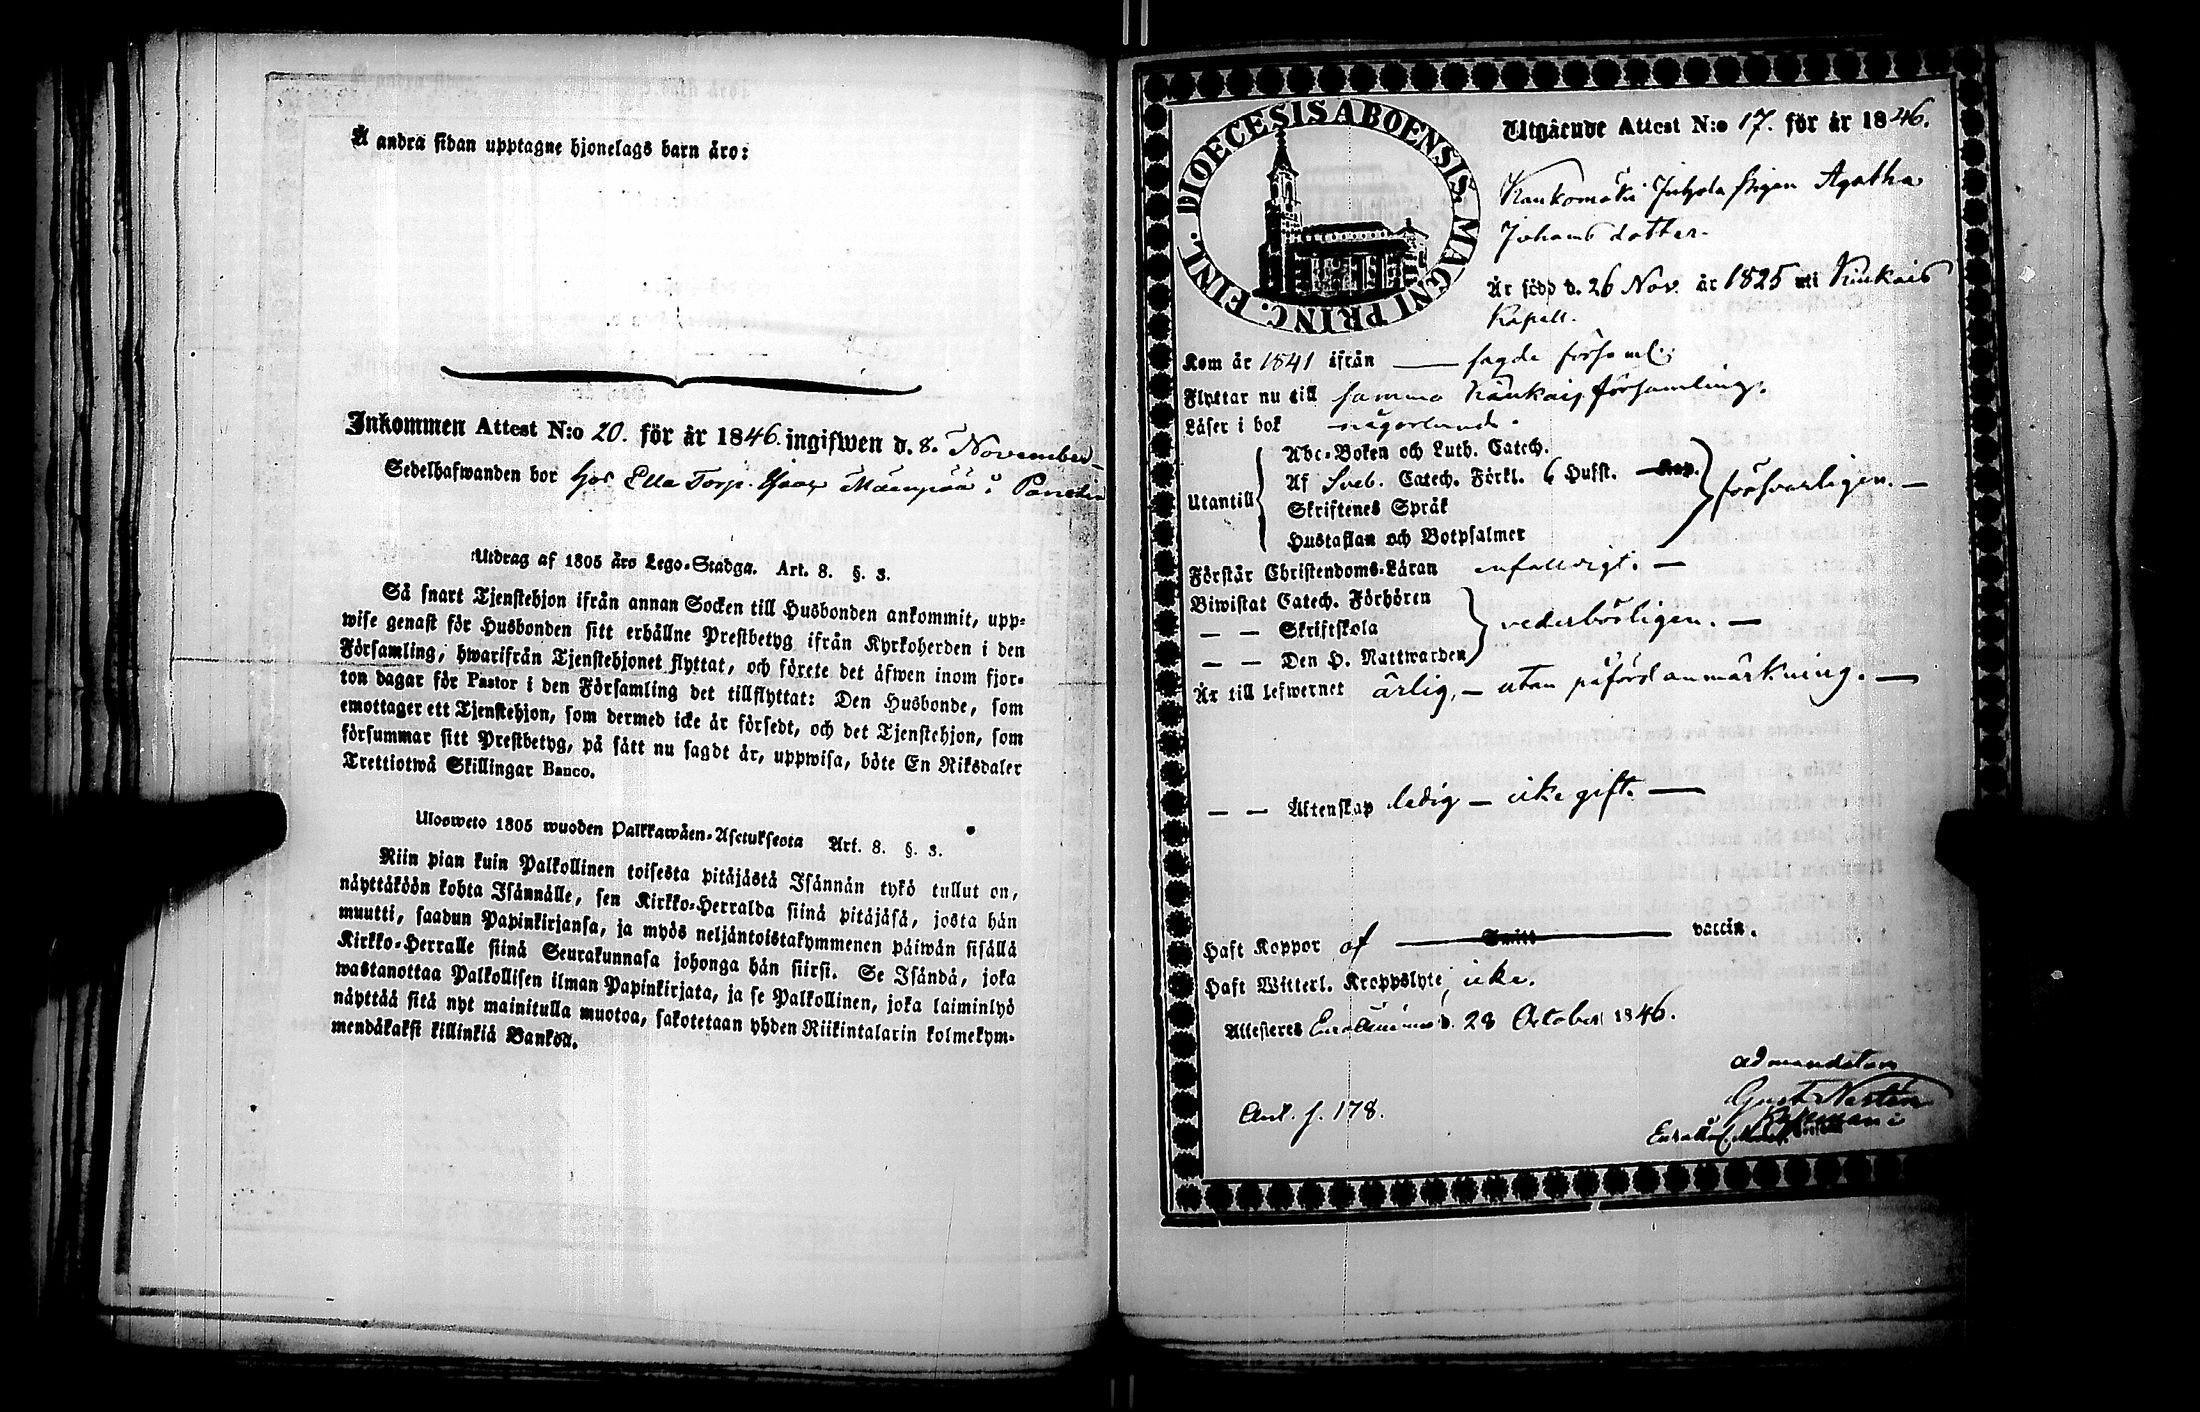 Å andra sidan upptagne hjonelags barn äro:
Inkommen Attest N:o 20. för år 1846. ingifwen d. 8. November
Sedelhafwanden bor hos Ella Torp. i
Utdrag af 1805 års Lego-Stadga. Art. 8. §. 3.
Så snart Tjenstehjon ifrån annan Socken till Husbonden ankommit, upp-
wise genast för Husbonden sitt erhållne Prestbetyg ifrån Kyrkoherden i den
Församling, hwarifrån Tjenstehjonet flyttat, och förete det äfwen inom fjor-
ton dagar för Pastor i den Församling det tillflyttat: Den Husbonde, som
emottager ett Tjenstehjon, som dermed icke är försedt, och det Tjenstehjon, som
försummar sitt Prestbetyg, på sätt nu sagdt är, uppwisa, böte En Riksdaler
Trettiotwå Skillingar Banco.
Ulosweto 1805 wuoden Palkkawäen-Asetuksesta Art. 8. §. 3.
Niin pian kuin Palkollinen toisesta pitäjästä Isännän tykö tullut on,
näyttäköön kohta Isännälle, sen Kirkko-Herralda siinä pitäjäsä, josta hän
muutti, saadun Papinkirjansa, ja myös neljäntoistakymmenen päiwän sisällä
Kirkko-Herralle siinä Seurakunnasa johonga hän siirsi. Se Isändä, joka
wastanottaa Palkollisen ilman Papinkirjata, ja se Palkollinen, joka laiminlyö
näyttää sitä nyt mainitulla muotoa, sakotetaan yhden Riikintalarin kolmekym-
mendäkaksi killinkiä Bankoa.
DIOECESIS ABOENSIS. MAGNI PRINC. FINL.
Utgående Attest N:o 17. för år 1846.
Kaukomäki Juhola pigan Agatha
Johans dotter.
Är född d. 26 Nov. år 1825 uti Kiukais
Kapell.
Kom år 1841 ifrån — sagde församl:
Flyttar nu till samma Kiukais församling.
Läser i bok någorlunda.
Utantill
Abc-Boken och Luth. Catech.
Af Sveb. Catech. Förkl. 6 Hufst. Kap. försvarligen. —
Skriftenes Språk
Hustaflan och Botpsalmer
Förstår Christendoms-Läran enfalldigt. —
Biwistat Catech. Förhören
— — Skriftskola vederbörligen. —
— — Den H. Nattwarden
Är till lefwernet ärlig, — utan påförd anmärkning. —
— — Äktenskap ledig — icke gift. —
Haft Koppor af Smitt vaccin.
Haft Witterl. Kroppslyte, icke.
Attesteres Euraåminne d. 28 October 1846.
ad mandatum
Gust. Nestén
Ant. f. 178.